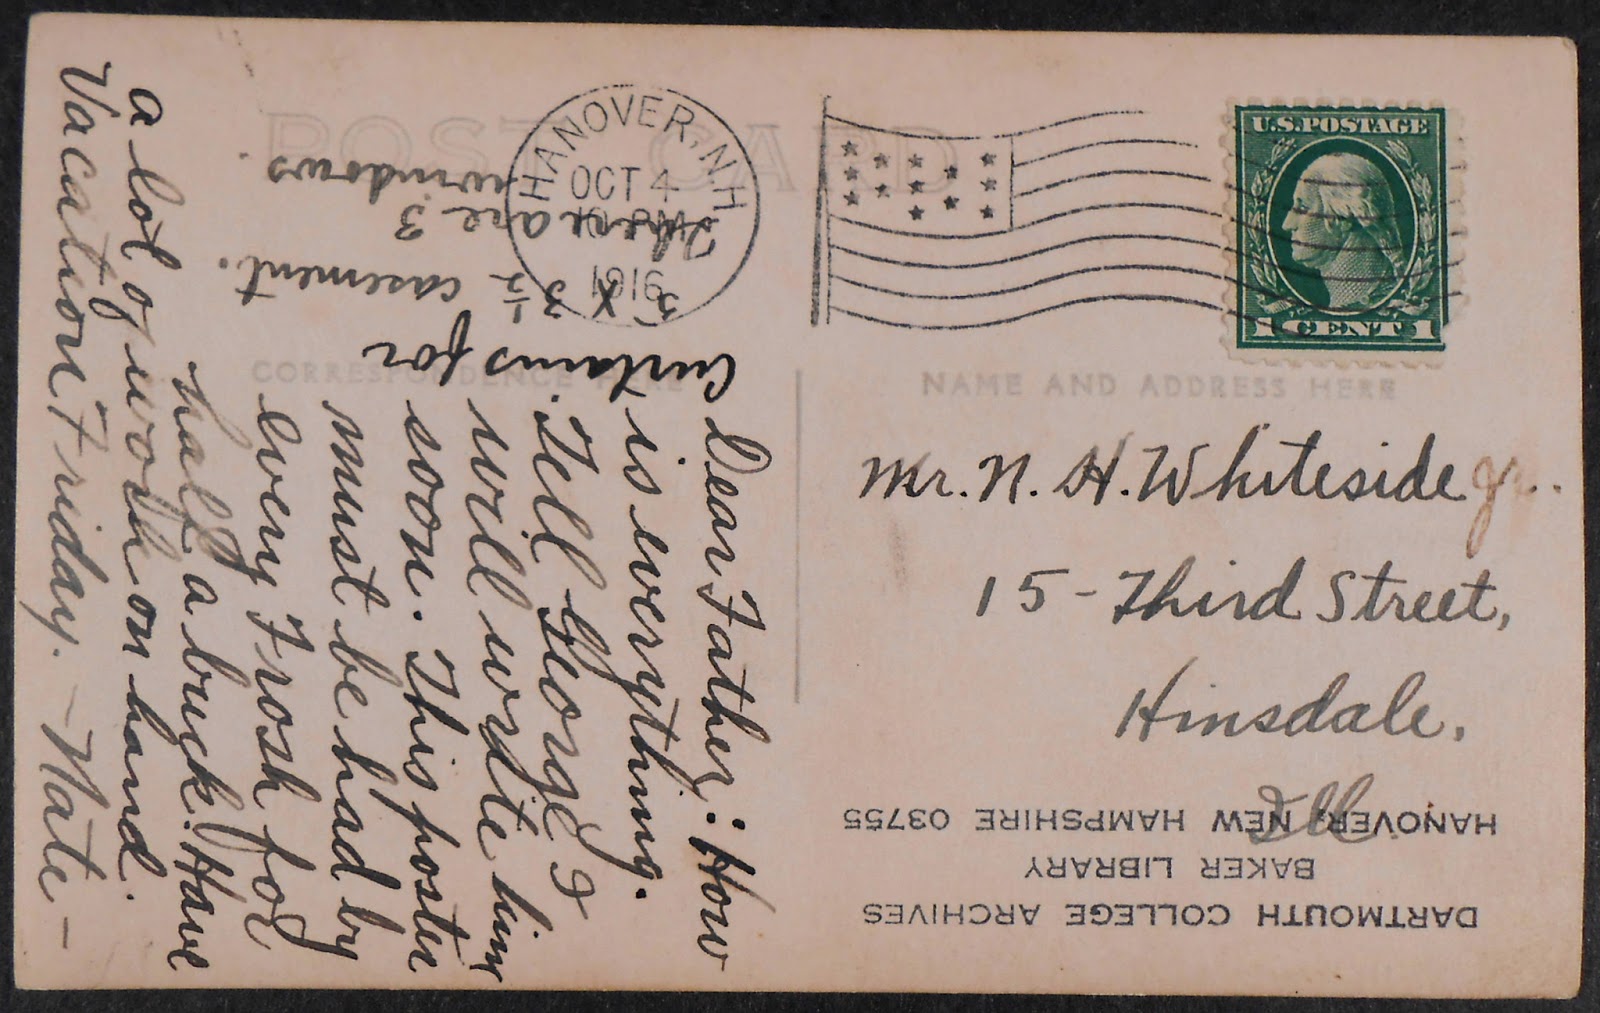 POST CARD
HANOVER, N.H.
OCT 4
1916
U.S. POSTAGE
1 CENT 1
CORRESPONDENCE HERE
NAME AND ADDRESS HERE
Mr. N. H. Whiteside Jr.
15 - Third Street,
Hinsdale,
Ill.
Dear Father: How
is everything.
Tell George I
will write him
soon. This poster
must be had by
every Frosh for
half a buck. Have
a lot of work on hand.
Vacation Friday. - Nate -
Curtains for
3 X 3 1/2 casement.
There are 3
windows.
DARTMOUTH COLLEGE ARCHIVES
BAKER LIBRARY
HANOVER, NEW HAMPSHIRE 03755